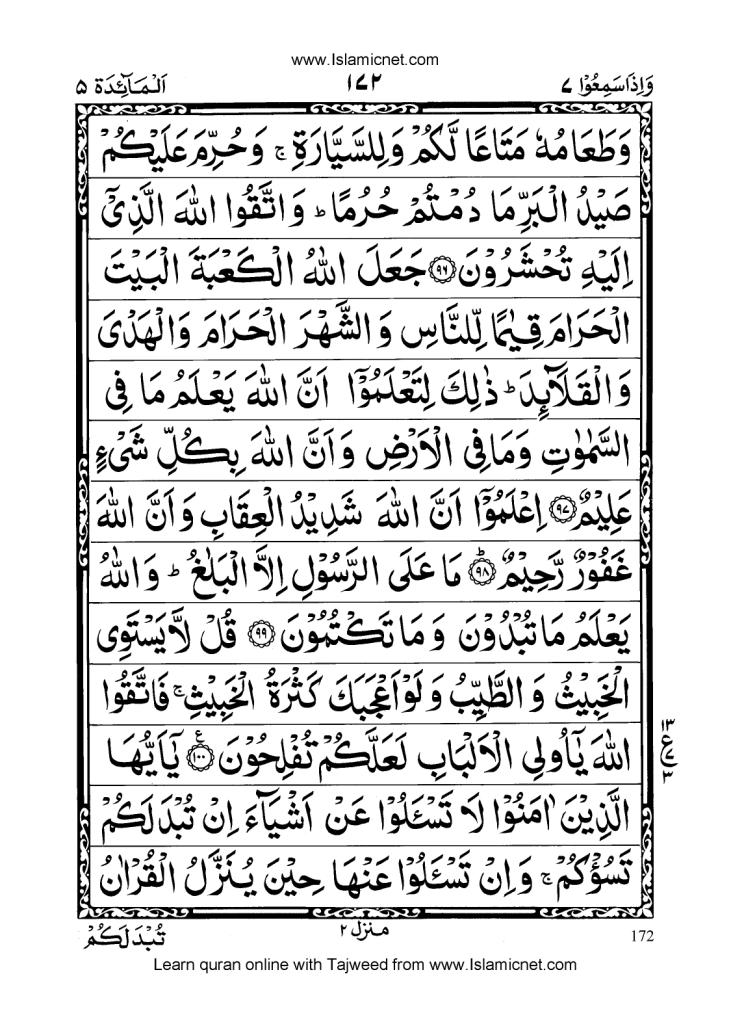 www.Islamicnet.com
وَاِذَاسَمِعُوْا ٧ ١٧٢ اَلْمَآئِدَة ٥
وَطَعَامُهٗ مَتَاعًا لَّكُمْ وَلِلسَّيَّارَةِ ۚ وَحُرِّمَ عَلَيْكُمْ
صَيْدُ الْبَرِّ مَا دُمْتُمْ حُرُمًا ؕ وَاتَّقُوا اللّٰهَ الَّذِيْۤ
اِلَيْهِ تُحْشَرُوْنَ ﴿۹۶﴾ جَعَلَ اللّٰهُ الْكَعْبَةَ الْبَيْتَ
الْحَرَامَ قِيٰمًا لِّلنَّاسِ وَالشَّهْرَ الْحَرَامَ وَالْهَدْيَ
وَالْقَلَآئِدَ ؕ ذٰلِكَ لِتَعْلَمُوْۤا اَنَّ اللّٰهَ يَعْلَمُ مَا فِي
السَّمٰوٰتِ وَمَا فِي الْاَرْضِ وَاَنَّ اللّٰهَ بِكُلِّ شَيْءٍ
عَلِيْمٌ ﴿۹۷﴾ اِعْلَمُوْۤا اَنَّ اللّٰهَ شَدِيْدُ الْعِقَابِ وَاَنَّ اللّٰهَ
غَفُوْرٌ رَّحِيْمٌ ﴿۹۸﴾ؕ مَا عَلَى الرَّسُوْلِ اِلَّا الْبَلٰغُ ؕ وَاللّٰهُ
يَعْلَمُ مَا تُبْدُوْنَ وَمَا تَكْتُمُوْنَ ﴿۹۹﴾ قُلْ لَّا يَسْتَوِي
الْخَبِيْثُ وَالطَّيِّبُ وَلَوْ اَعْجَبَكَ كَثْرَةُ الْخَبِيْثِ ۚ فَاتَّقُوا
اللّٰهَ يٰۤاُولِي الْاَلْبَابِ لَعَلَّكُمْ تُفْلِحُوْنَ ﴿۱۰۰﴾ع يٰۤاَيُّهَا
١٣
ع ٧
٣
الَّذِيْنَ اٰمَنُوْا لَا تَسْـَٔلُوْا عَنْ اَشْيَآءَ اِنْ تُبْدَ لَكُمْ
تَسُؤْكُمْ ۚ وَاِنْ تَسْـَٔلُوْا عَنْهَا حِيْنَ يُنَزَّلُ الْقُرْاٰنُ
172 منزل ٢ تُبْدَ لَكُمْ
Learn quran online with Tajweed from www.Islamicnet.com